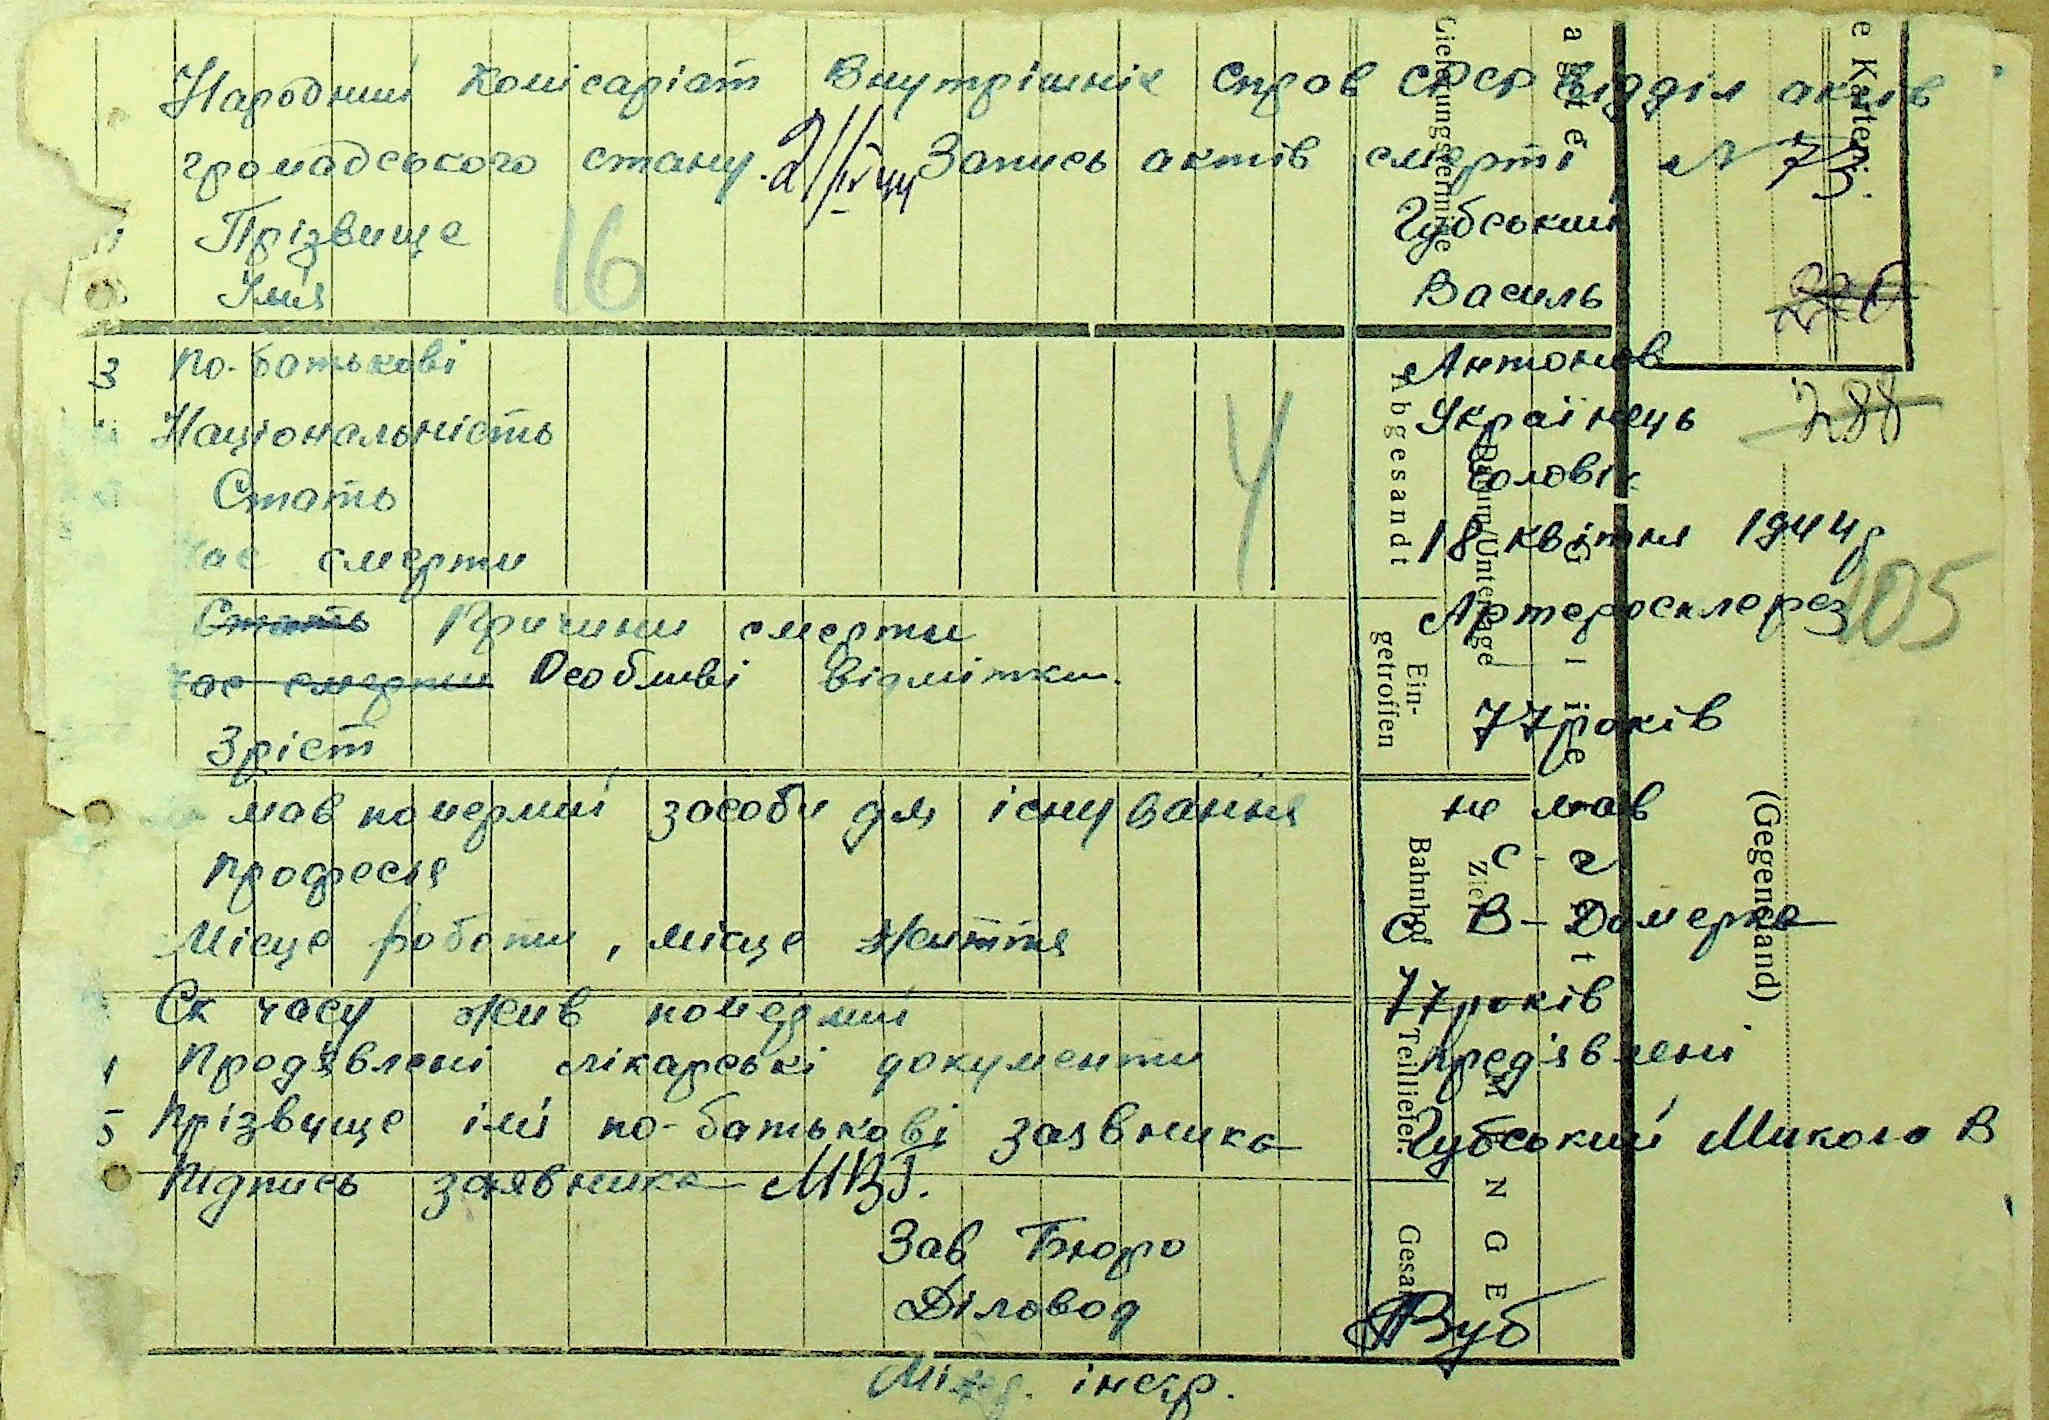 Народний Комісаріат Внутрішніх Справ СРСР Відділ актів
громадського стану. 21/IV 44 Запись актів смерті N 73.
Прізвище Губський
Імя 16 Василь
220
3 По-батькові Антонов
Національність Українець 288
Стать Чоловік
Час смерти 4 18 квітня 1944 р
Стать Причини смерти Артеросклероз 105
Час смерти Особливі відмітки.
Зріст 77 років
мав померший засоби для існування не мав
Професія с-г
Місце роботи, місце життя с В-Домерка
Ск часу жив померший 77 років
Предъявлені лікарські документи предъявлені
5 Прізвище імя по-батькові заявника Губський Микола В
Підпись заявника
Зав Бюро
Діловод
інстр.
e Kartei
Lieferungstermine
Abgesandt
Datum/Unterlage
Ein-
getroffen
Geliefert
Bahnhof
Ziel
(Gegenstand)
Teilliefer.
MENGE